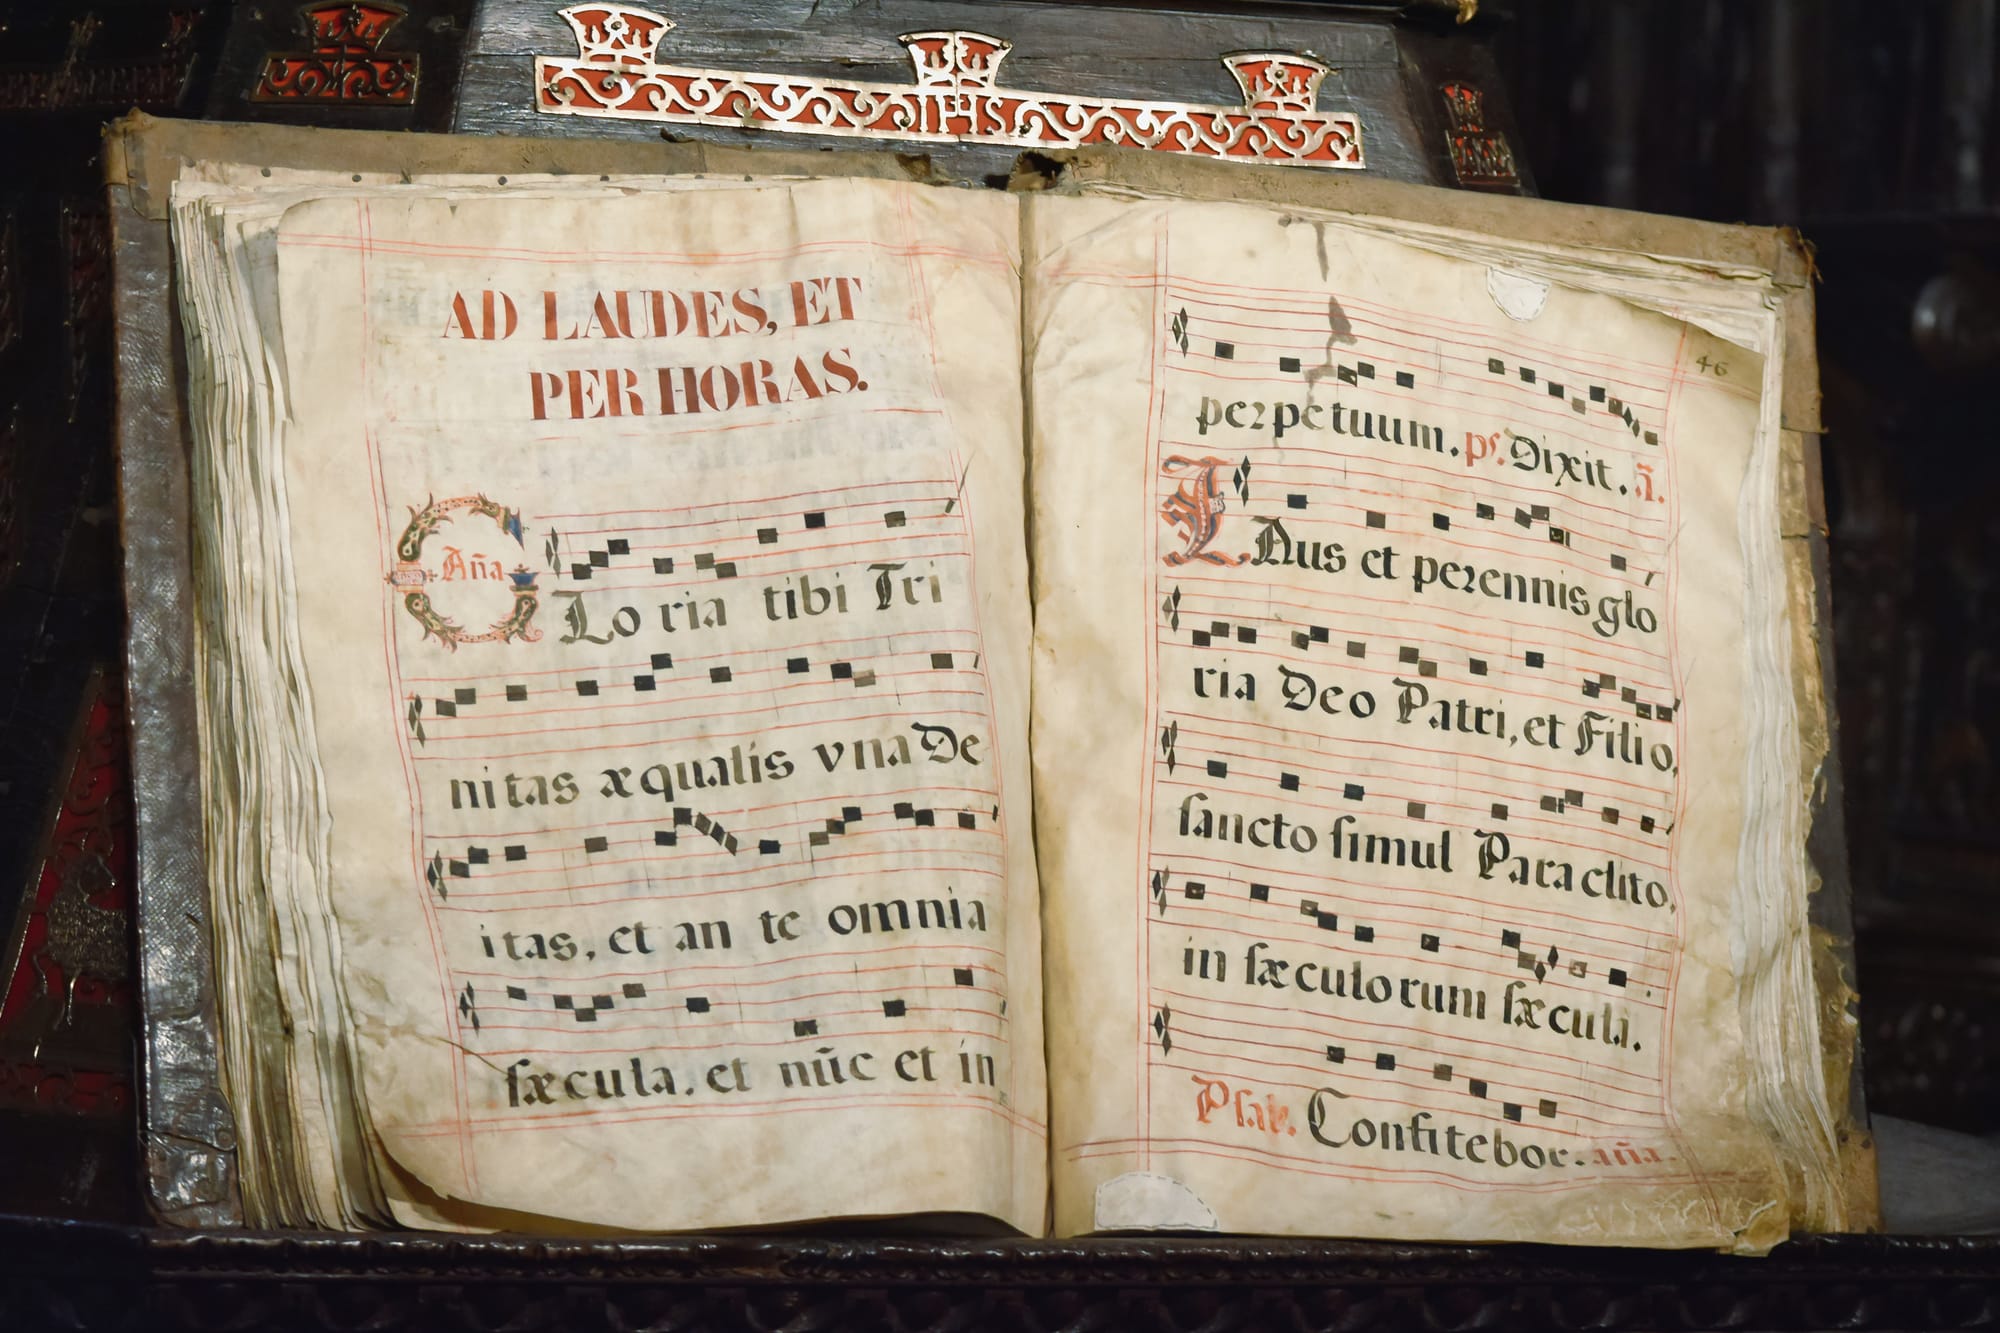 IHS
AD LAUDES, ET
PER HORAS.
Aña
GLoria tibi Tri
nitas æqualis vna De
itas, et ante omnia
ſæcula. et nũc et in
46
perpetuum. pſ. Dixit. ã.
LAus et perennis glo
ria Deo Patri, et Filio,
ſancto ſimul Paraclito,
in ſæculorum ſæcula.
Pſal. Confitebor. aña.